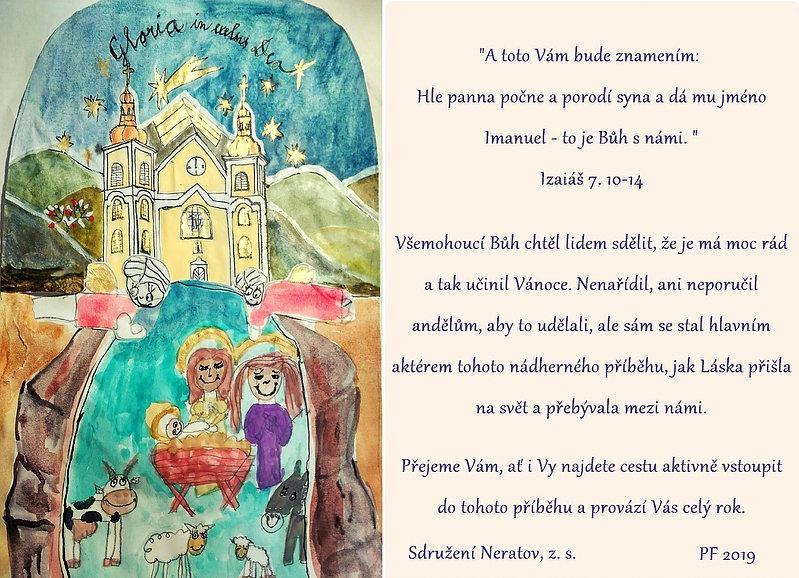 Gloria in excelsis Deo
"A toto Vám bude znamením:
Hle panna počne a porodí syna a dá mu jméno
Imanuel - to je Bůh s námi. "
Izaiáš 7. 10-14
Všemohoucí Bůh chtěl lidem sdělit, že je má moc rád
a tak učinil Vánoce. Nenařídil, ani neporučil
andělům, aby to udělali, ale sám se stal hlavním
aktérem tohoto nádherného příběhu, jak Láska přišla
na svět a přebývala mezi námi.
Přejeme Vám, ať i Vy najdete cestu aktivně vstoupit
do tohoto příběhu a provází Vás celý rok.
Sdružení Neratov, z. s.
PF 2019